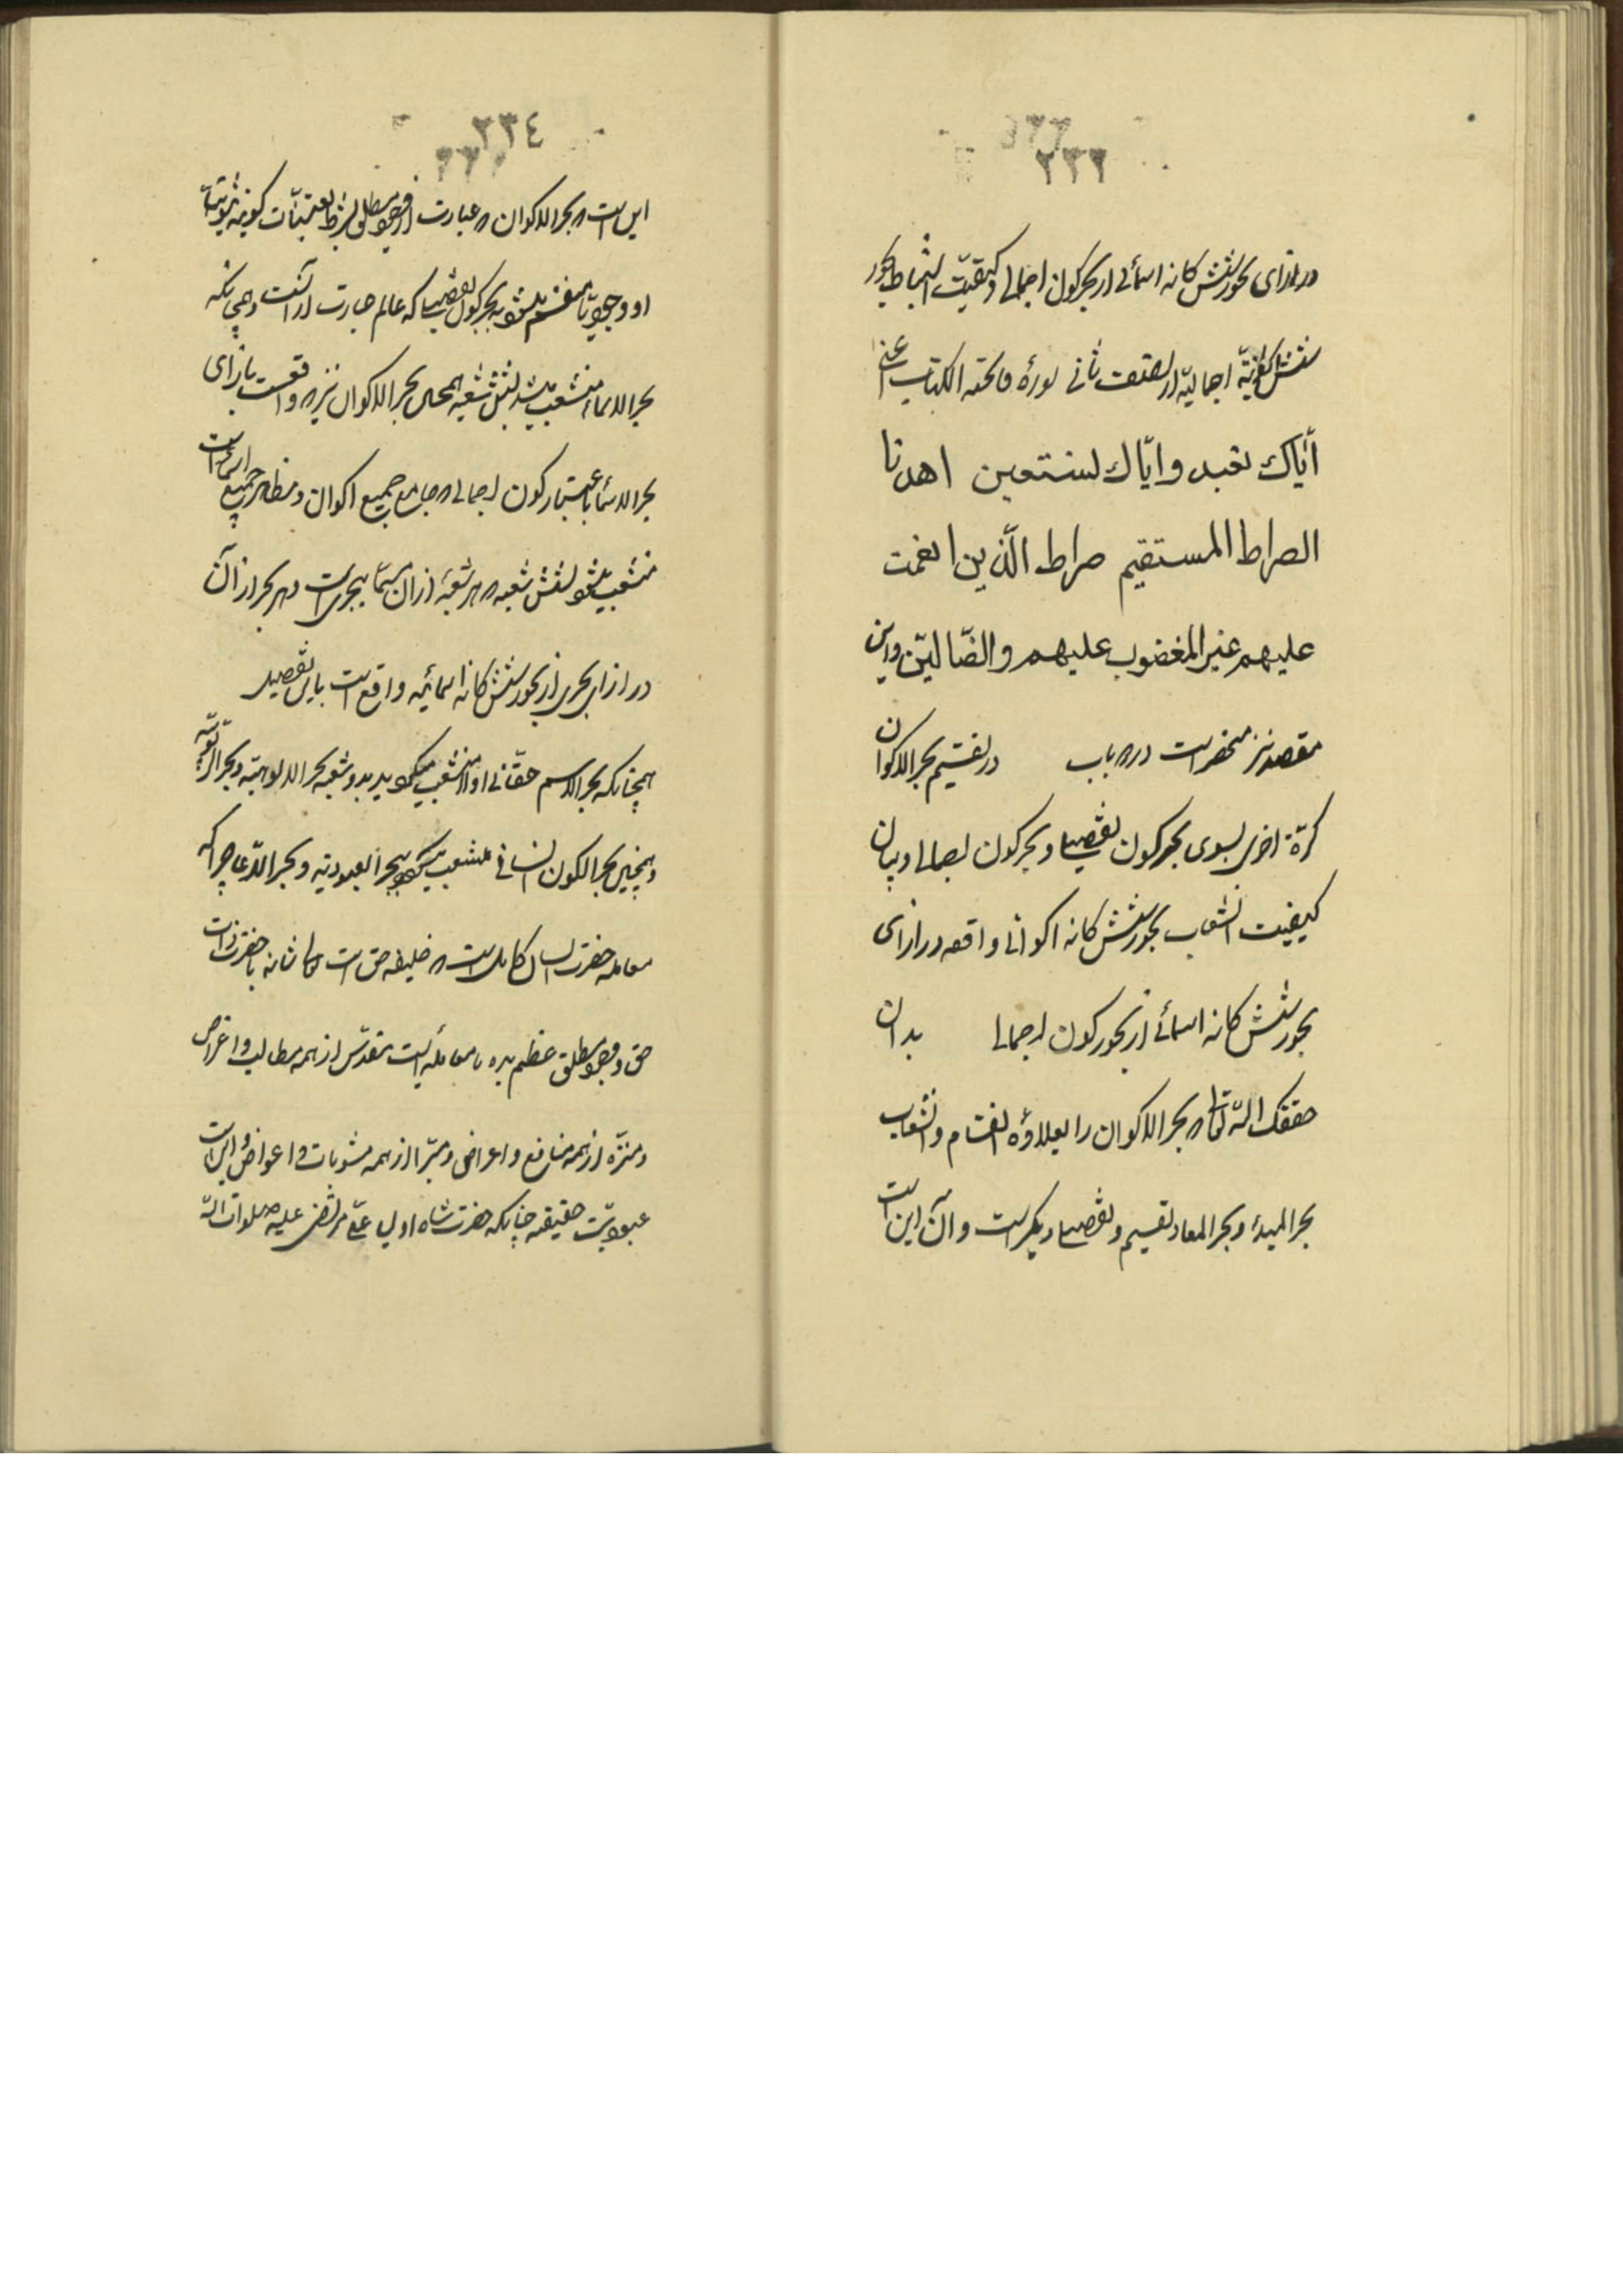 ٢٣٣
در ازای بحور شش کانه اسمائی از بحر کون اجمالی و کیفیّت استنباط بحور
شش کانهٔ اجمالیّه از نصف ثانی سورهٔ فاتحة الکتاب اعنی
أیّاك نعبد و ایّاك نستعین اهدنا
الصراط المستقیم صراط الّذین انعمت
علیهم غیر المغضوب علیهم و الضّالیّن و این
مقصد نیز منحصر است در باب در تقسیم بحر الاکوان
کرّة اخری بسوی بحر کون تفصیلی و بحر کون اجمالی و بیان
کیفیت انشعاب بحور شش کانه اکوانی واقعه در ازای
بحور شش کانه اسمائی از بحور کون اجمالی بدان
حققك اللّه تعالی بحر الاکوان را بعلاوهٔ انقسام و انشعاب
بحر المبدء و بحر المعاد تقسیم و تفصیل دیگر است و آن این است
٢٣٤
این است که بحر الاکوان که عبارت از وجود مطلق بشرط تعیّنات کونیه
او وجودیّا منقسم میشود به بحر کون تفصیلی که عالم عبارت از آنست و همچنانکه
بحر الاسماء منشعب میشد بشش شعبه همچنین بحر الاکوان نیز که واقعست بازای
بحر الاسماء باعتبار کون اجمالی که جامع جمیع اکوان و مظاهر جمیع اسماء است
منشعب میشود بشش شعبه که هر شعبهٔ از آن مسمّا ببحری است و هر بحر از آن
در ازای بحری از بحور شش کانه اسمائیه واقع است باین تفصیل
همچنانکه بحر الاسم حقّانی اولا منشعب میکردید بدو شعبه بحر الالوهیّة و بحر الربوبیّة
و همچنین بحر الکون انسانی منشعب میکردد ببحر العبودیة و بحر الدّعا چرا که
معامله حضرت انسان کامل است که خلیفه حق است تعالی شانه با حضرت ذات
حق و وجود مطلق معامله ایست مقدّس از همه مطالب و اغراض
و منزّه از همه منافع و اعراض و مبرّا از همه مثوبات و اعواض و این است
عبودیّت حقیقیه چنانکه حضرت شاه اولیا علیّ مرتضی علیه صلوات اللّه